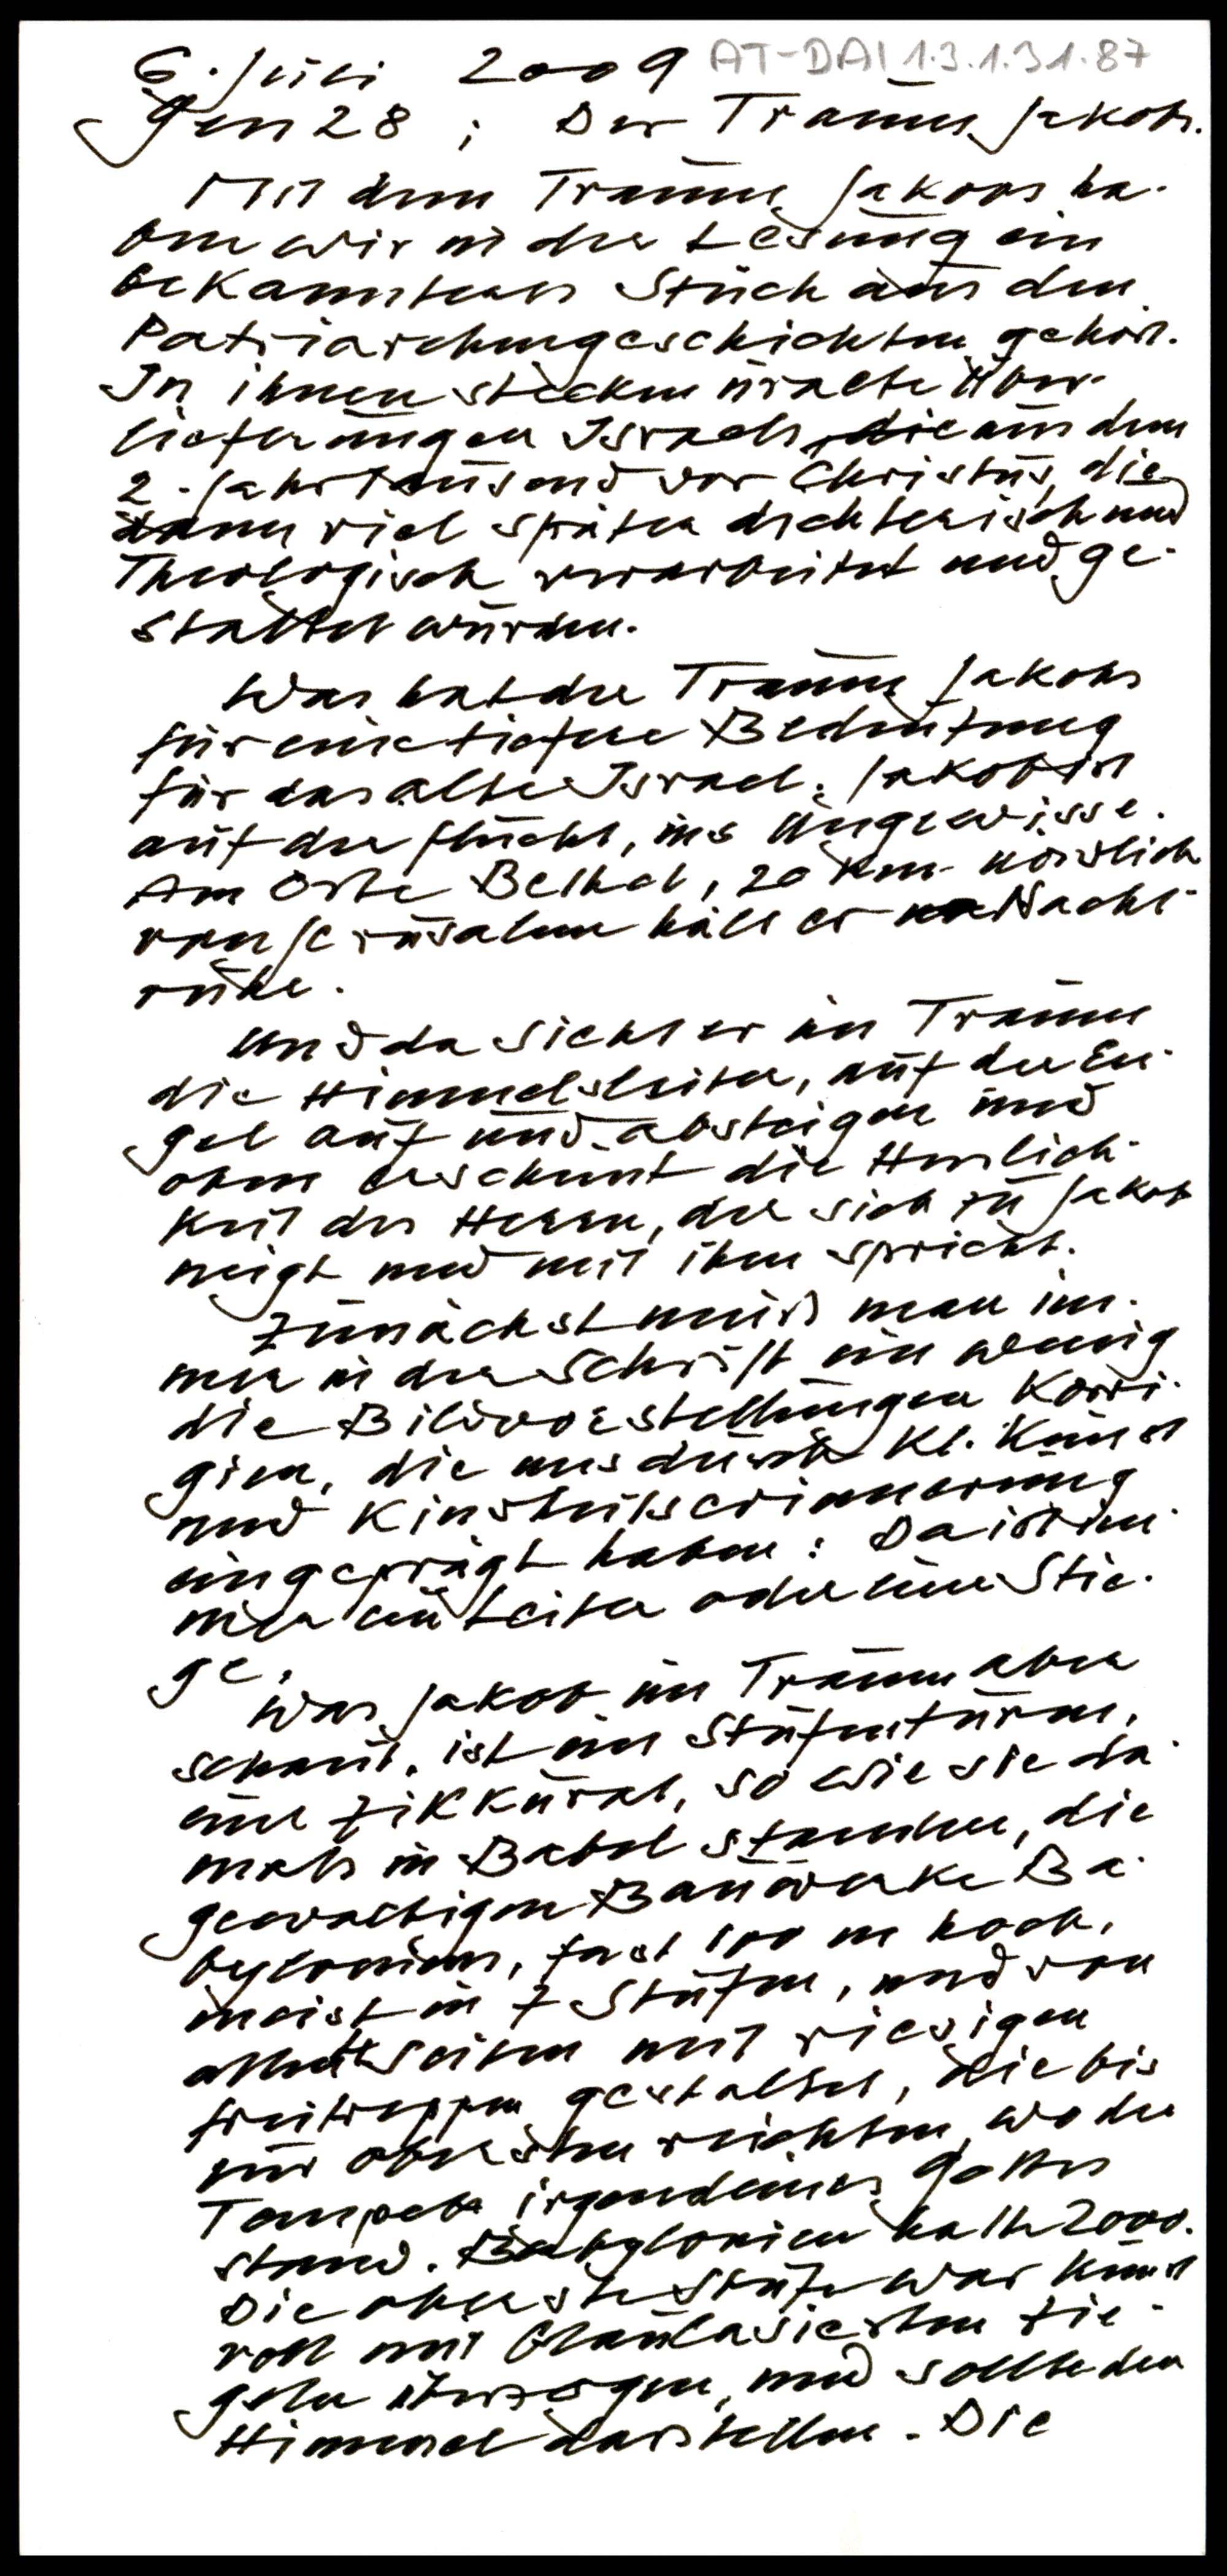 6. Juli 2009 AT-DAI 1.3.1.31.87
Gen 28; Der Traum Jakobs.
Mit dem Traum Jakobs ha-
ben wir in der Lesung ein
bekanntes Stück aus den
Patriarchengeschichten gehört.
In ihnen stecken uralte Über-
lieferungen Israels, die aus dem
2. Jahrtausend vor Christus, die
dann viel später dichterisch und
Theologisch verarbeitet und ge-
staltet wurden.
Was hat der Traum Jakobs
für eine tiefere Bedeutung
für das alte Israel: Jakob ist
auf der Flucht, ins Ungewisse.
Am Orte Bethel, 20 km nördlich
von Jerusalem hält er Nacht-
ruhe.
Und da sieht er im Traum
die Himmelsleiter, auf der En-
gel auf und absteigen und
oben erscheint die Herrlich-
keit des Herrn, der sich zu Jakob
neigt und mit ihm spricht.
Zunächst muß man im-
mer in der Schrift ein wenig
die Bildvorstellungen korri-
gieren, die uns durch kl. Kunst
und Kindheitserinnerung
eingeprägt haben: Da ist im-
mer eine Leiter oder eine Stie-
ge.
Was Jakob im Traum aber
schaut, ist ein Stufenturm,
eine Zikkurat, so wie sie da-
mals in Babel standen, die
gewaltigen Bauwerke Ba-
byloniens, fast 100 m hoch,
meist in 7 Stufen, und von
allen Seiten mit riesigen
Freitreppen gestaltet, die bis
zur obersten reichten, wo der
Tempel irgendeines Gottes
stand. Babylonien hatte 2000.
Die oberste Stufe war kunst
voll mit blauglasierten Zie-
geln überzogen, und sollte den
Himmel darstellen. Die